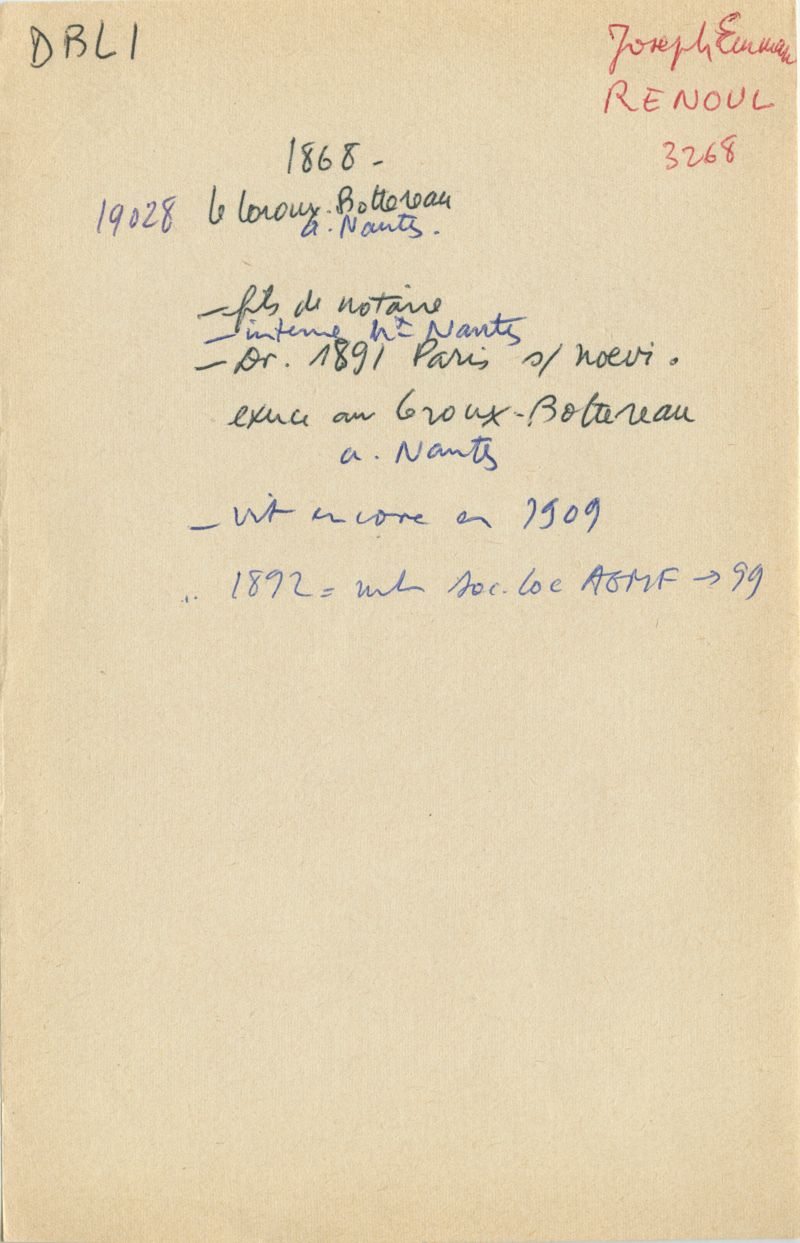 DBLI
Joseph Emman
RENOUL
3268
1868 -
19028 le Loroux-Bottereau
a. Nantes.
- fils de notaire
- interne ht Nantes
- Dr. 1891 Paris s/ noevi.
exerce au Loroux-Bottereau
a. Nantes
- vit encore en 1909
.. 1892 = mb soc. loc AGMF → 99